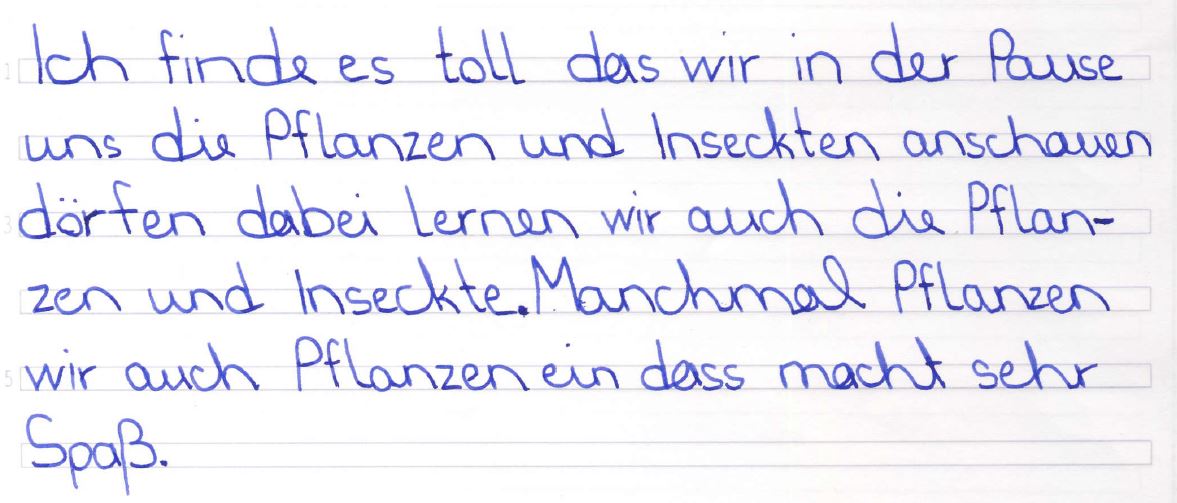 Ich finde es toll das wir in der Pause
uns die Pflanzen und Inseckten anschauen
dörfen dabei Lernen wir auch die Pflan-
zen und Inseckte. Manchmal Pflanzen
wir auch Pflanzen ein dass macht sehr
Spaß.